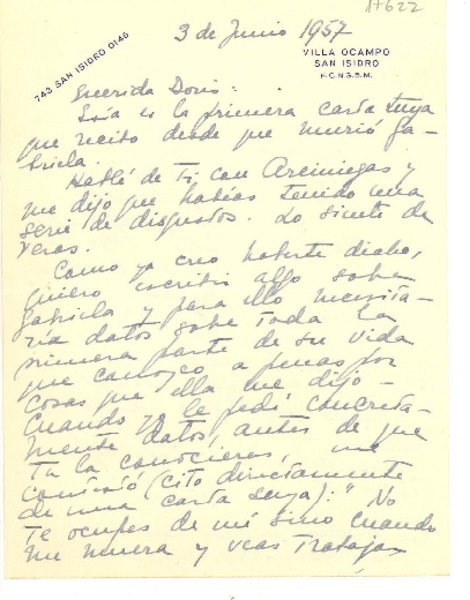 17622
3 de Junio 1957
743 SAN ISIDRO 0146
VILLA OCAMPO
SAN ISIDRO
F.C.N.G.B.M.
Querida Doris:
Esta es la primera carta tuya
que recibo desde que murió Ga-
briela.
Hablé de ti con Arciniegas y
me dijo que habías tenido una
serie de disgustos. Lo siento de
veras.
Como ya creo haberte dicho,
quiero escribir algo sobre
Gabriela y para ello necesita-
ría datos sobre toda la
primera parte de su vida
que conozco apenas por
cosas que ella me dijo-
Cuando yo le pedí concreta-
mente datos, antes de que
tu la conocieras, me
contestó (cito directamente
de una carta suya): "No
te ocupes de mi sino cuando
me muera y veas trabajar